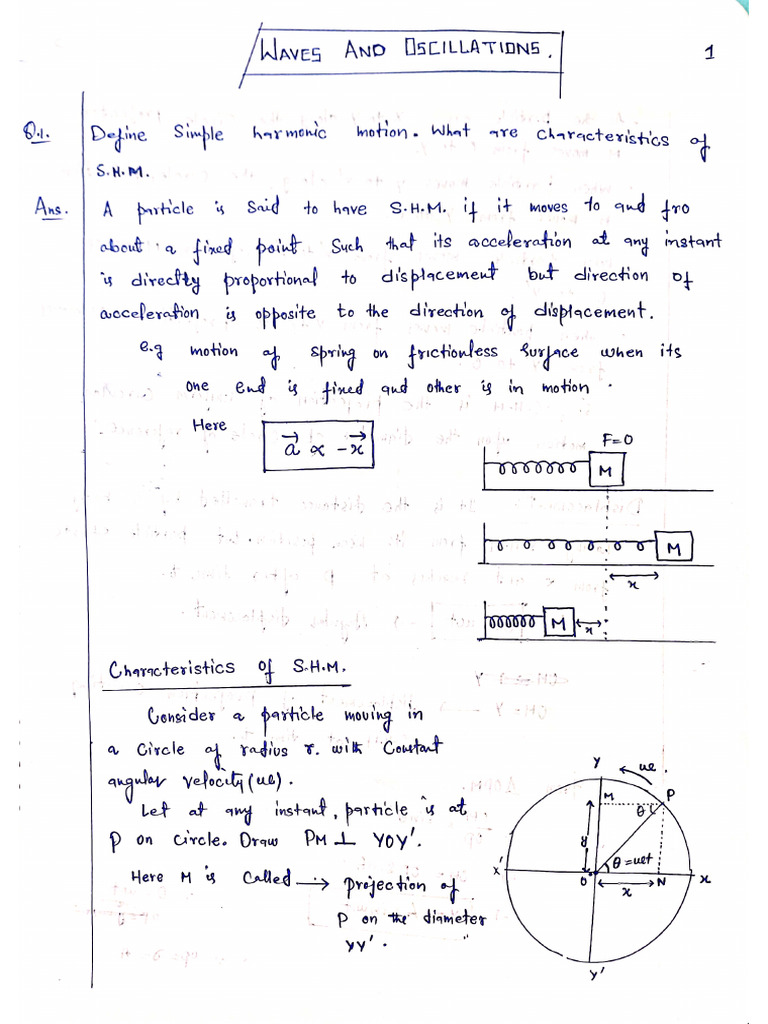 WAVES AND OSCILLATIONS.
1
Q.1. Define Simple harmonic motion. What are characteristics of
S.H.M.
Ans. A particle is said to have S.H.M. if it moves to and fro
about a fixed point such that its acceleration at any instant
is directly proportional to displacement but direction of
acceleration is opposite to the direction of displacement.
e.g motion of spring on frictionless surface when its
one end is fixed and other is in motion.
Here
a⃗ ∝ -x⃗
F=0
M
M
x
M
x
Characteristics of S.H.M.
Consider a particle moving in
a circle of radius r. with constant
angular velocity (ω).
Let at any instant, particle is at
P on circle. Draw PM ⊥ YOY'.
Here M is called → projection of
P on the diameter
YY'.
Y
ω
M
P
θ
y
θ=ωt
X'
O
N
X
x
Y'